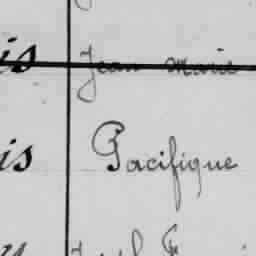 is Jean Marie
is Pacifique